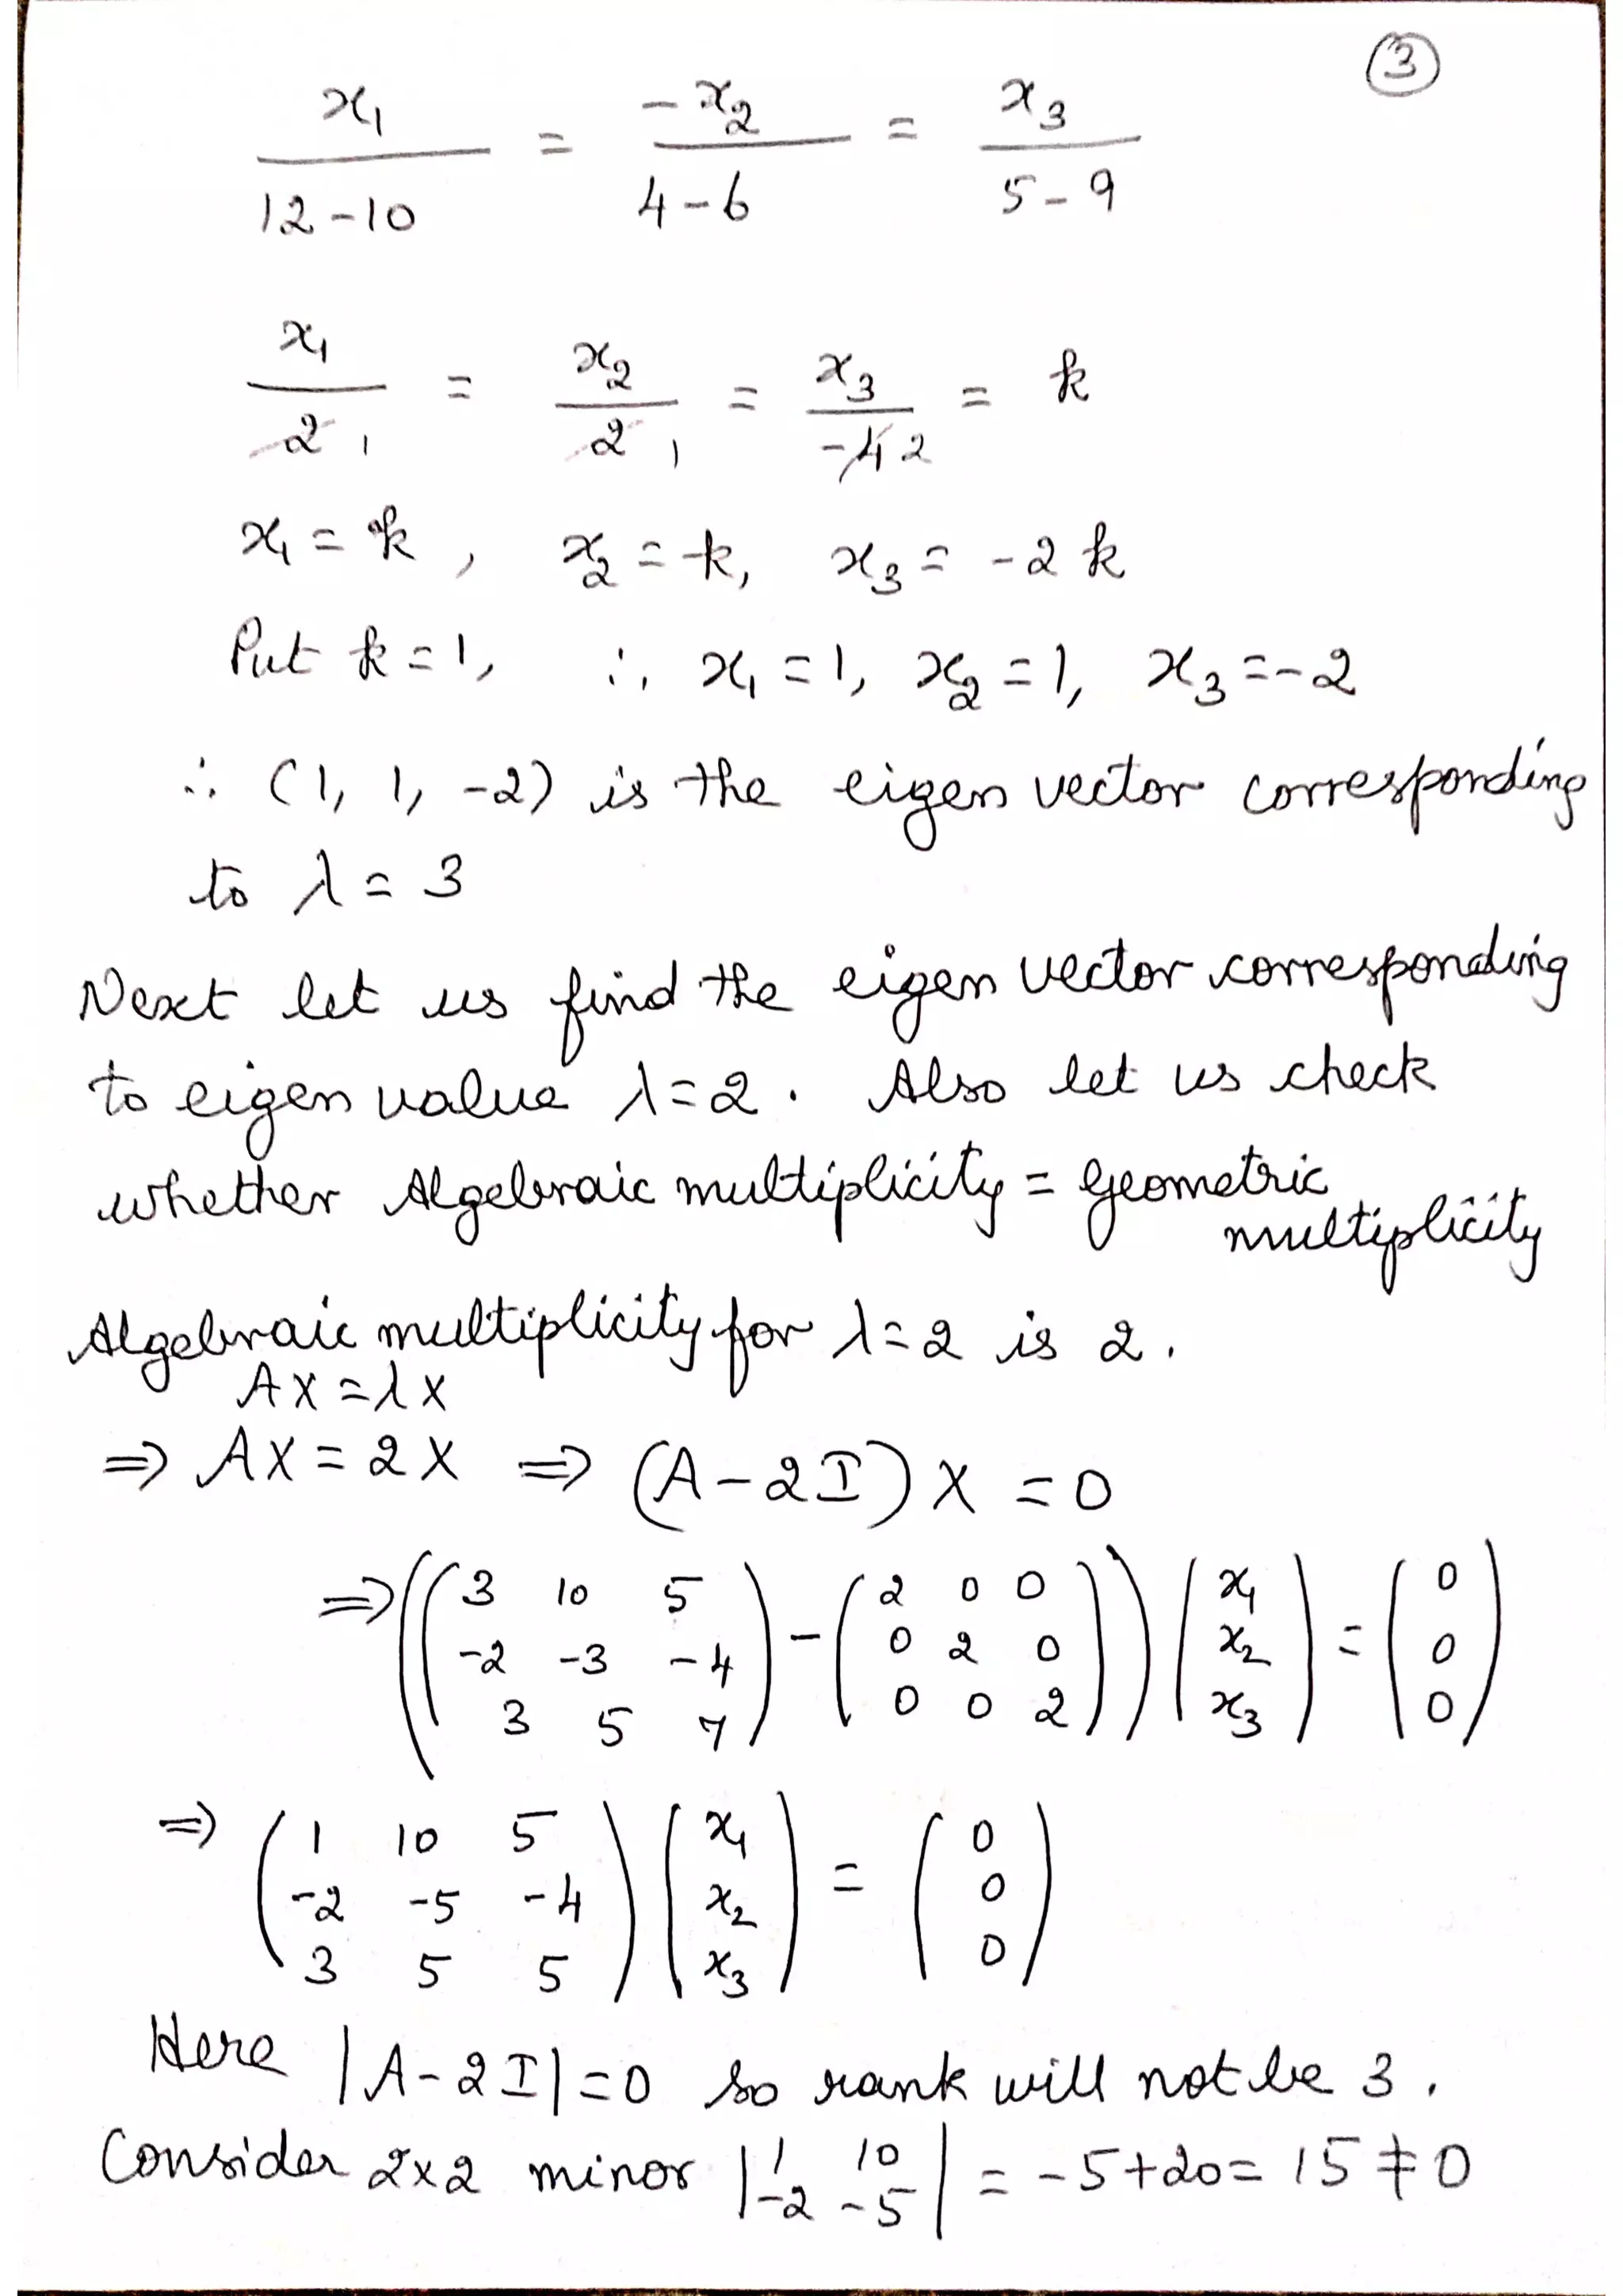 ③
x₁/(12-10) = -x₂/(4-6) = x₃/(5-9)
x₁/2 1 = x₂/2 1 = x₃/-4 2 = k
x₁ = k, x₂ = k, x₃ = -2k
Put k=1, ∴ x₁ = 1, x₂ = 1, x₃ = -2
∴ (1, 1, -2) is the eigen vector corresponding
to λ = 3
Next let us find the eigen vector corresponding
to eigen value λ=2. Also let us check
whether Algebraic multiplicity = geometric
multiplicity
Algebraic multiplicity for λ=2 is 2.
AX = λX
⇒ AX = 2X ⇒ (A-2I) X = 0
⇒ ((3 10 5; -2 -3 -4; 3 5 7) - (2 0 0; 0 2 0; 0 0 2)) (x₁; x₂; x₃) = (0; 0; 0)
⇒ (1 10 5; -2 -5 -4; 3 5 5) (x₁; x₂; x₃) = (0; 0; 0)
Here |A-2I| = 0 so rank will not be 3.
Consider 2x2 minor |1 10; -2 -5| = -5+20 = 15 ≠ 0